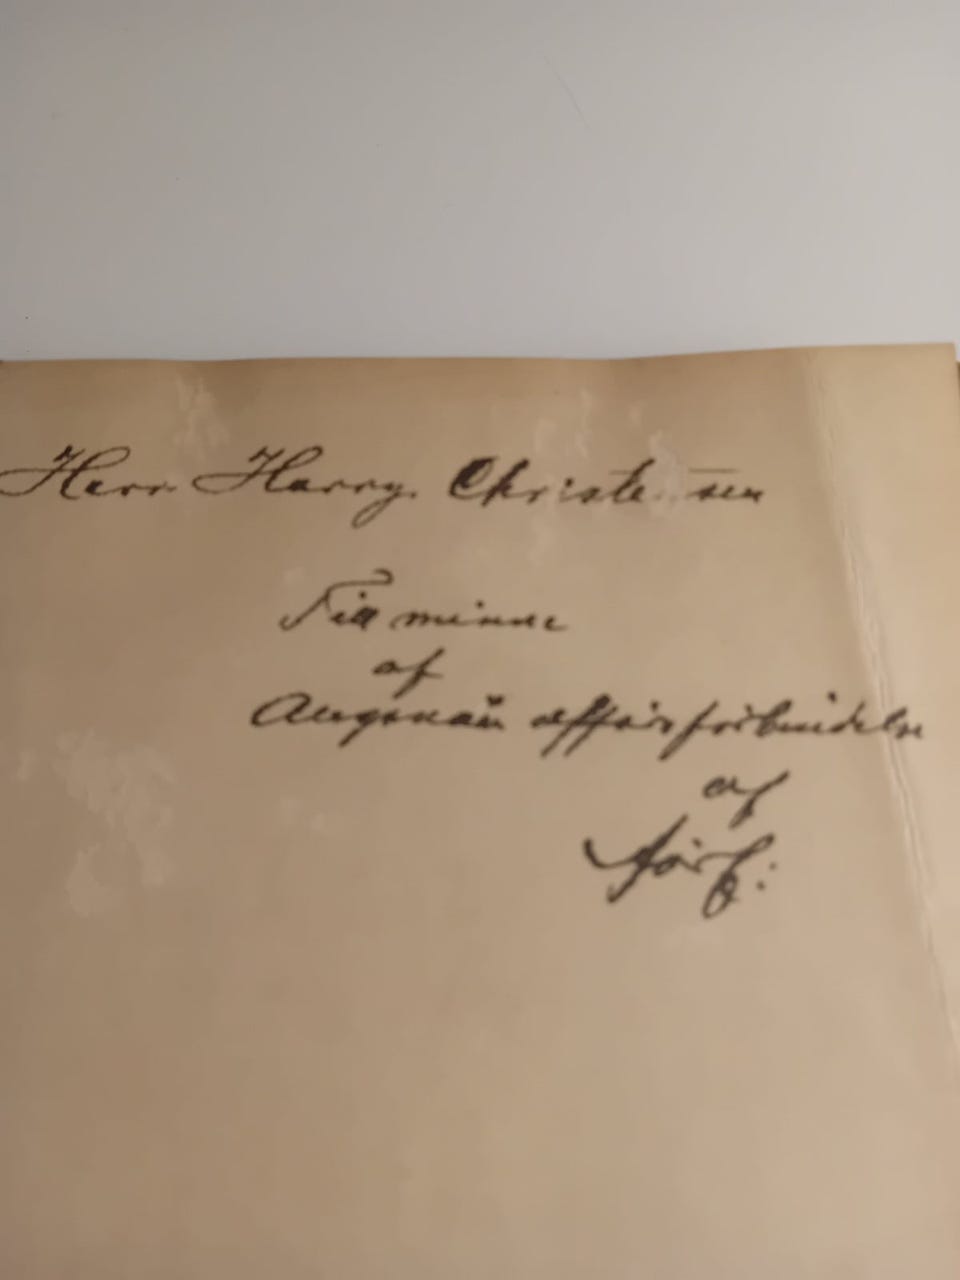 Herr Harry Christensen
Till minne
af
Angenäm affärsförbindelse
af
förf: